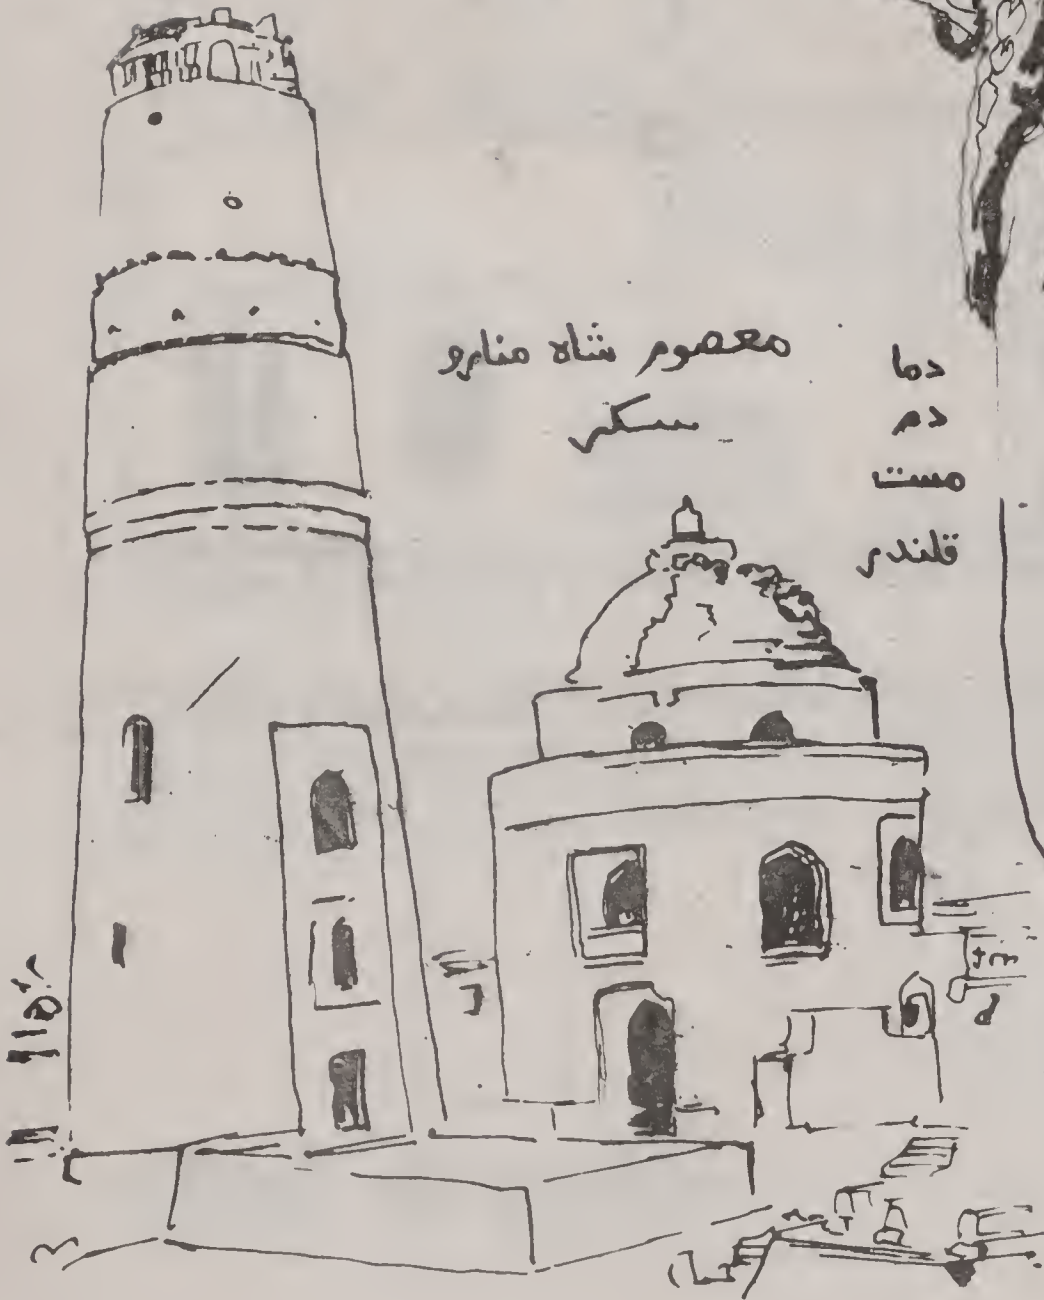 معصوم شاه منارو
سکر
دما
دم
مست
قلندر